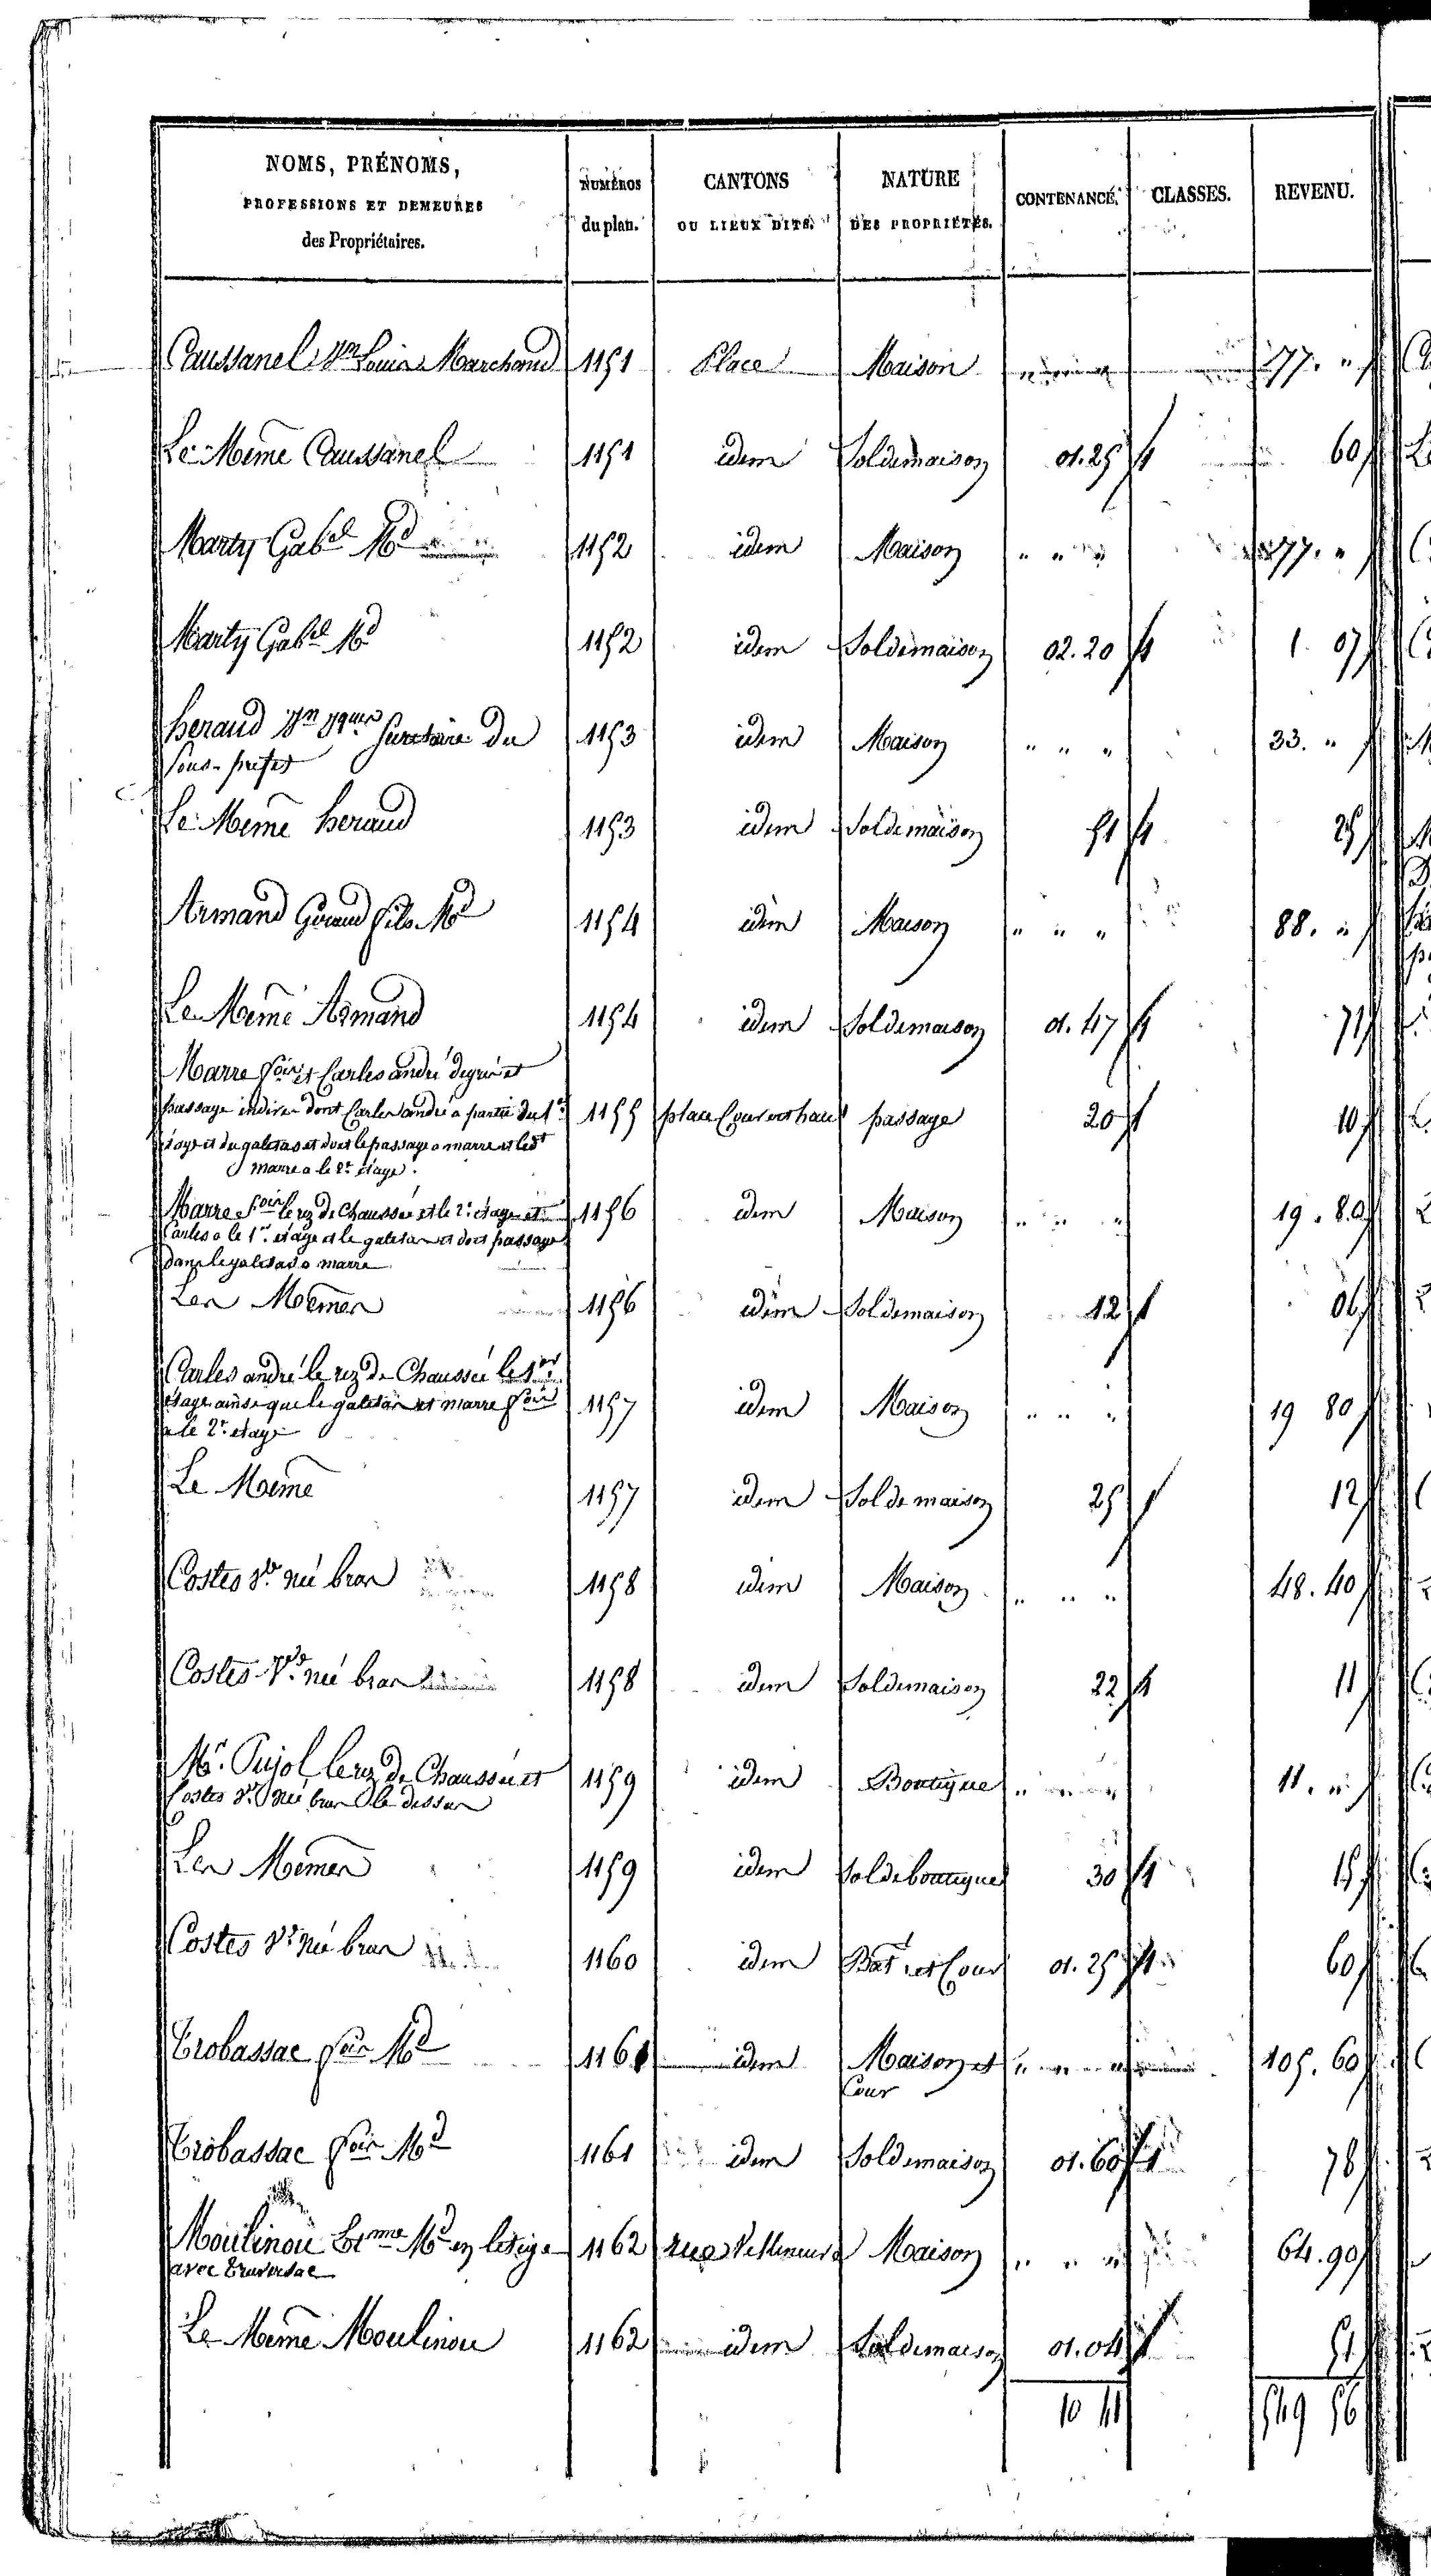 NOMS, PRÉNOMS, PROFESSIONS ET DEMEURES des Propriétaires. NUMÉROS du plan. CANTONS OU LIEUX DITS. NATURE DES PROPRIÉTÉS. CONTENANCE. CLASSES. REVENU.
Caussanel Louis Marchand 1151 Place Maison " " " 77. "
Le Même Caussanel 1151 idem Sol de maison 01.25 1 60
Marty Gabel Md 1152 idem Maison " " " 77. "
Marty Gabel Md 1152 idem Sol de maison 02.20 1 1. 07
heraud Secretaire du 1153 idem Maison " " " 33. "
Sous-prefet
Le Même heraud 1153 idem Sol de maison 51 1 25
Armand Geraud fils Md 1154 idem Maison " " " 88. "
Le Même Armand 1154 idem Sol de maison 01.47 1 71
Marre foix et Carles andré et
passage indivis dont Carles andré a partie du 1er 1155 place passage 20 1 10
étage et du galetas et doit le passage a marre et led
marre a le 2e étage.
Marre foix le rez de Chaussée et le 2e étage et 1156 idem Maison " " " 19. 80
Carles a le 1er étage et le galetas et doit passage
dans le galetas a marre
Les Mêmes 1156 idem Sol de maison 12 1 06
Carles andré le rez de Chaussée le 1er
étage ainsi que le galetas et marre foix 1157 idem Maison " " " 19 80
a le 2e etage
Le Même 1157 idem Sol de maison 25 1 12
Costes Ve née bras 1158 idem Maison " " " 48.40
Costes Ve née bras 1158 idem Sol de maison 22 1 11
Mr. Pujol le rez de Chaussée et 1159 idem Boutique " " " 11. "
Costes Ve née bras le dessus
Les Mêmes 1159 idem Sol de boutique 30 1 15
Costes Ve née bras 1160 idem Bat et Cour 01.25 1 60
Trobassac foix Md 1161 idem Maison et " " " 105. 60
Cour
Trobassac foix Md 1161 idem Sol de maison 01.60 1 78
Moulinou Md en litige 1162 rue Maison " " " 64.90
avec
Le Même Moulinou 1162 idem Sol de maison 01.04 1 51
10 41 549 56